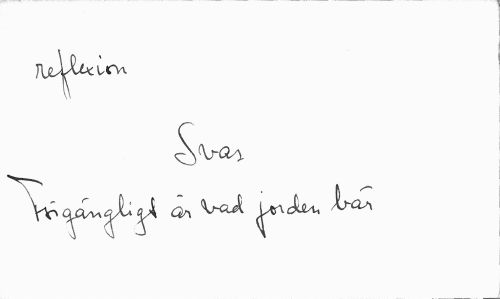 reflexion
Svar
Förgängligt är vad jorden bär